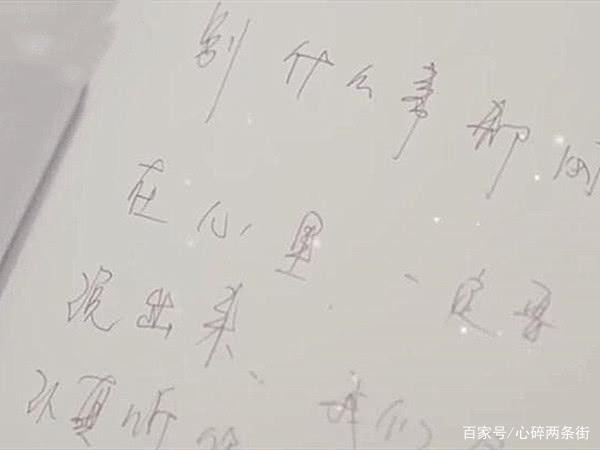 别什么事都闷
在心里、一定要
说出来、
认真听 你们
百家号/心碎两条街